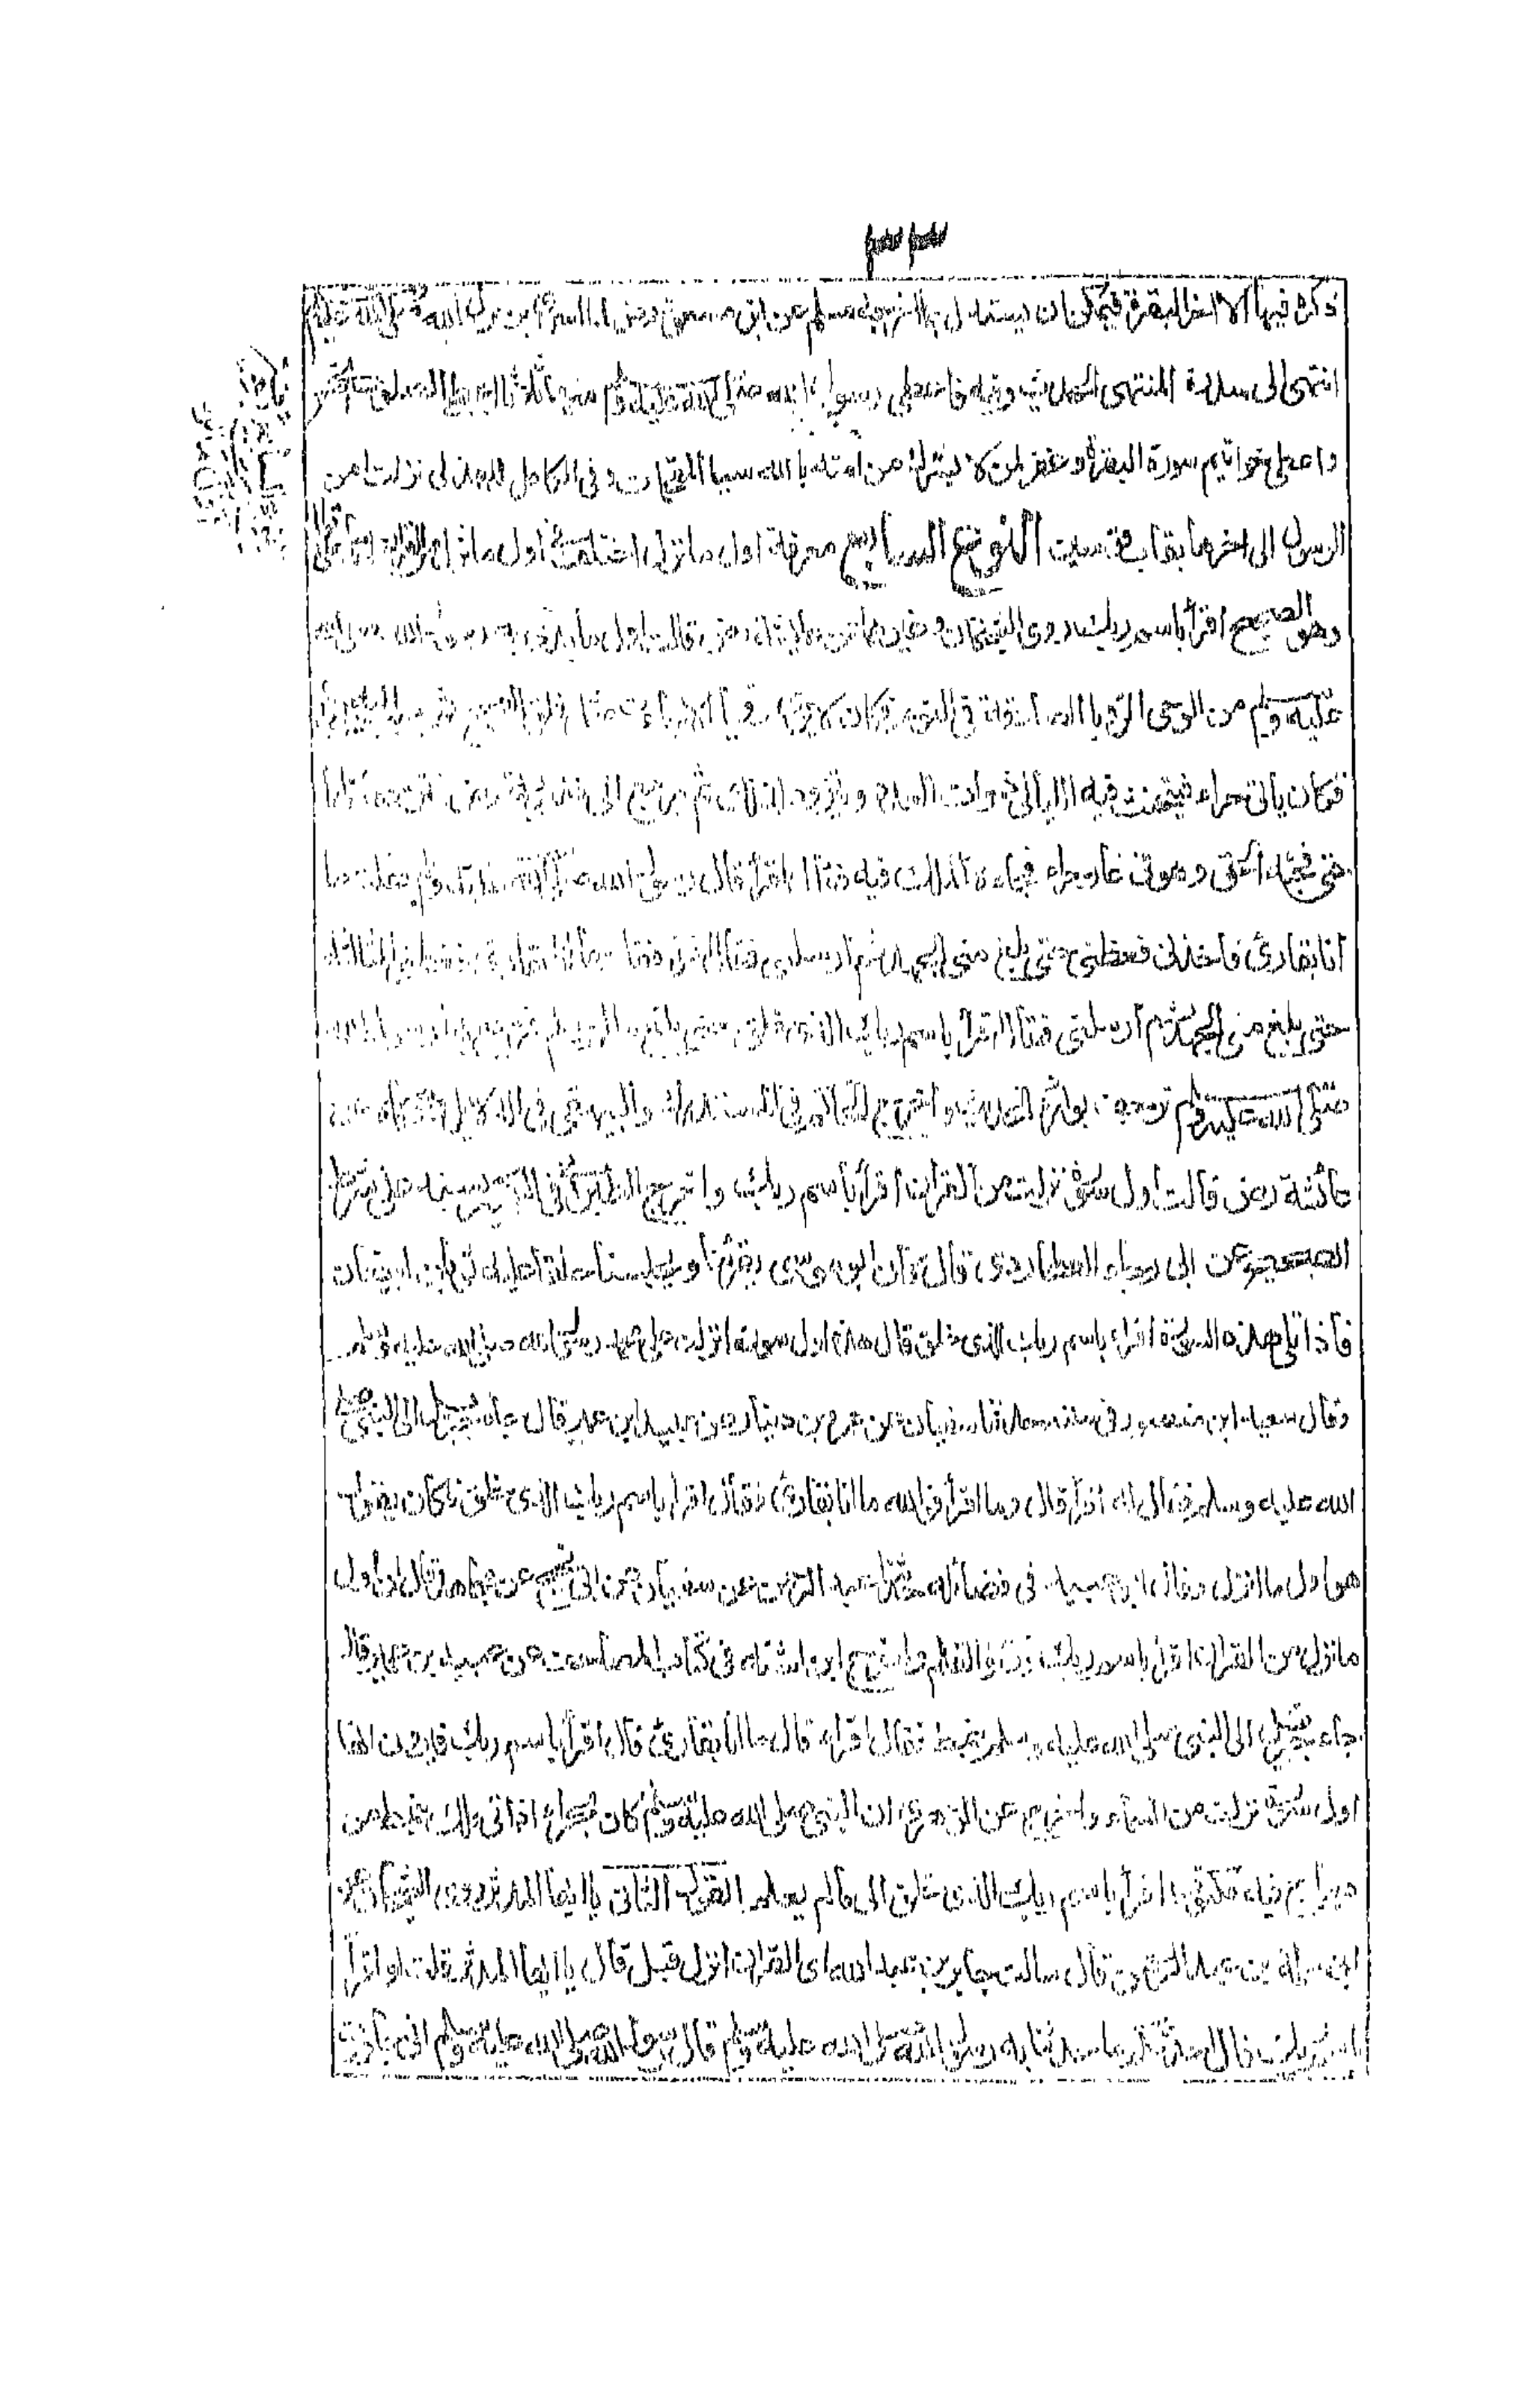 ذكره فيها الا اخر البقرة فيمكن ان يستدل بما اخرجه مسلم عن ابن مسعود رض لما اسرى برسول الله صلى الله عليه
انتهى الى سدرة المنتهى الحديث وفيه فاعطى رسول الله صلى الله عليه وسلم منها ثلثا اعطى الصلوة الخمس
واعطى خواتيم سورة البقرة وغفر لمن لا يشرك من امته بالله شيا المقحمات وفى الكامل للهذلى نزلت امن
الرسول الى اخرها بقاب قوسين النوع السابع معرفة اول ما نزل اختلف فى اول ما نزل من القران على
وهو الصحيح اقرأ باسم ربك روى الشيخان وغيرهما عن عائشة رض قالت اول ما بدئ به رسول الله صلى الله
عليه وسلم من الوحى الرؤيا الصادقة فى النوم فكان لا يرى رؤيا الا جاءت مثل فلق الصبح ثم حبب اليه
فكان ياتى حراء فيتحنث فيه الليالى ذوات العدد ويتزود لذلك ثم يرجع الى خديجة رض فتزوده لمثلها
حتى فجئه الحق وهو فى غار حراء فجاءه الملك فيه فقال اقرأ قال رسول الله صلى الله عليه وسلم فقلت ما
انا بقارئ فاخذنى فغطنى حتى بلغ منى الجهد ثم ارسلنى فقال اقرأ فقلت ما انا بقارئ فغطنى الثالثة
حتى بلغ منى الجهد ثم ارسلنى فقال اقرأ باسم ربك الذى خلق حتى بلغ ما لم يعلم فرجع بها رسول الله
صلى الله عليه وسلم ترجف بوادره الحديث واخرج الحاكم فى المستدرك والبيهقى فى الدلائل وصححاه عن
عائشة رض قالت اول سورة نزلت من القران اقرأ باسم ربك واخرج الطبرانى فى الكبير بسند على شرط
الصحيح عن ابى رجاء العطاردى قال كان ابو موسى يقرئنا ويجلسنا حلقا عليه ثوبان ابيضان
فاذا تلى هذه السورة اقراء باسم ربك الذى خلق قال هذه اول سورة انزلت على محمد رسول الله صلى الله عليه وسلم
وقال سعيد ابن منصور فى سننه حدثنا سفيان عن عمرو بن دينار عن عبيد ابن عمير قال جاء جبريل الى النبى صلى
الله عليه وسلم فقال له اقرأ قال وما اقرأ فوالله ما انا بقارئ فقال اقرأ باسم ربك الذى خلق فكان يقول
هو اول ما انزل وقال ابو عبيد فى فضائله حدثنا عبد الرحمن عن سفيان عن ابى نجيح عن مجاهد قال ان اول
ما نزل من القران اقرأ باسم ربك ون والقلم واخرج ابن اشته فى كتاب المصاحف عن عبيد بن عمير قال
جاء جبريل الى النبى صلى الله عليه وسلم بنمط فقال اقراء قال ما انا بقارئ قال اقرأ باسم ربك فيرون انها
اول سورة نزلت من السماء واخرج عن الزهرى ان النبى صلى الله عليه وسلم كان بحراء اذ اتى ملك بنمط من
ديباج فيه مكتوب اقرأ باسم ربك الذى خلق الى ما لم يعلم القول الثانى يا ايها المدثر روى الشيخان عن
ابى سلمة بن عبد الرحمن قال سالت جابر بن عبد الله اى القران انزل قبل قال يا ايها المدثر قلت او اقرأ
باسم ربك قال احدثكم ما حدثنا به رسول الله صلى الله عليه وسلم قال رسول الله صلى الله عليه وسلم انى جاورت